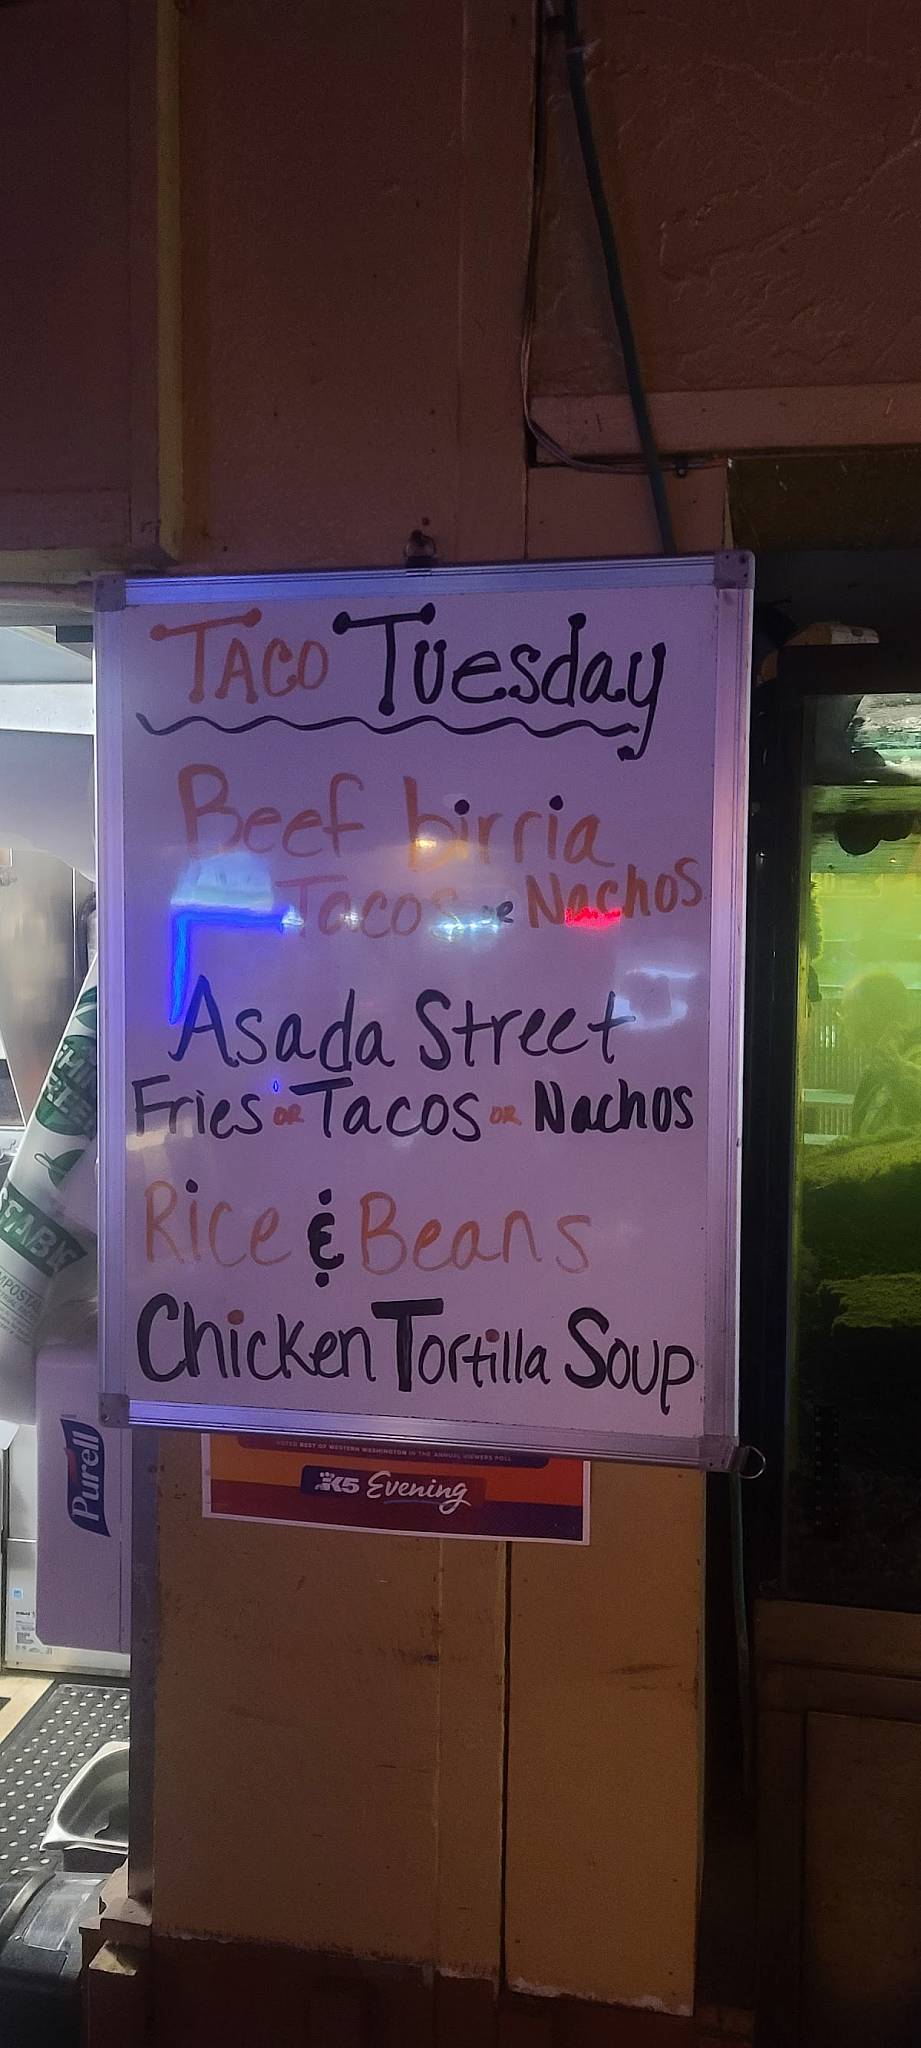 TACO Tuesday
Beef birria
Tacos or Nachos
Asada Street
Fries OR Tacos OR Nachos
Rice & Beans
Chicken Tortilla Soup
VOTED BEST OF WESTERN WASHINGTON IN THE ANNUAL VIEWERS POLL
K5 Evening
Purell